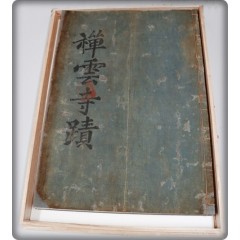 禅雲寺蹟